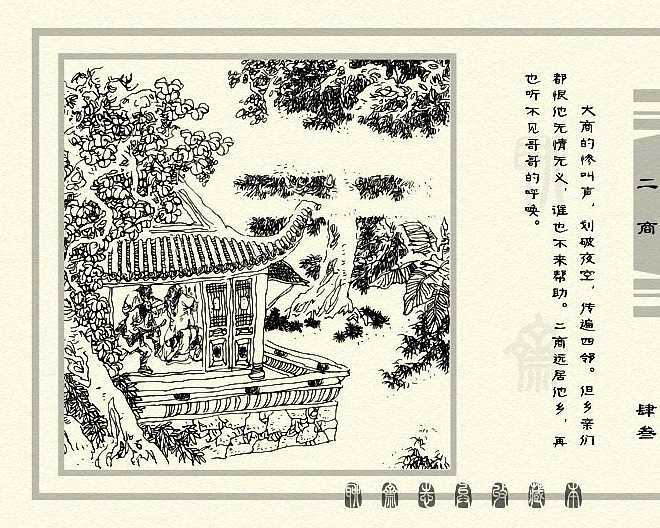 大商的惨叫声，划破夜空，传遍四邻。但乡亲们
都恨他无情无义，谁也不来帮助。二商远居他乡，再
也听不见哥哥的呼唤。
二商
肆叁
聊斋志异收藏本